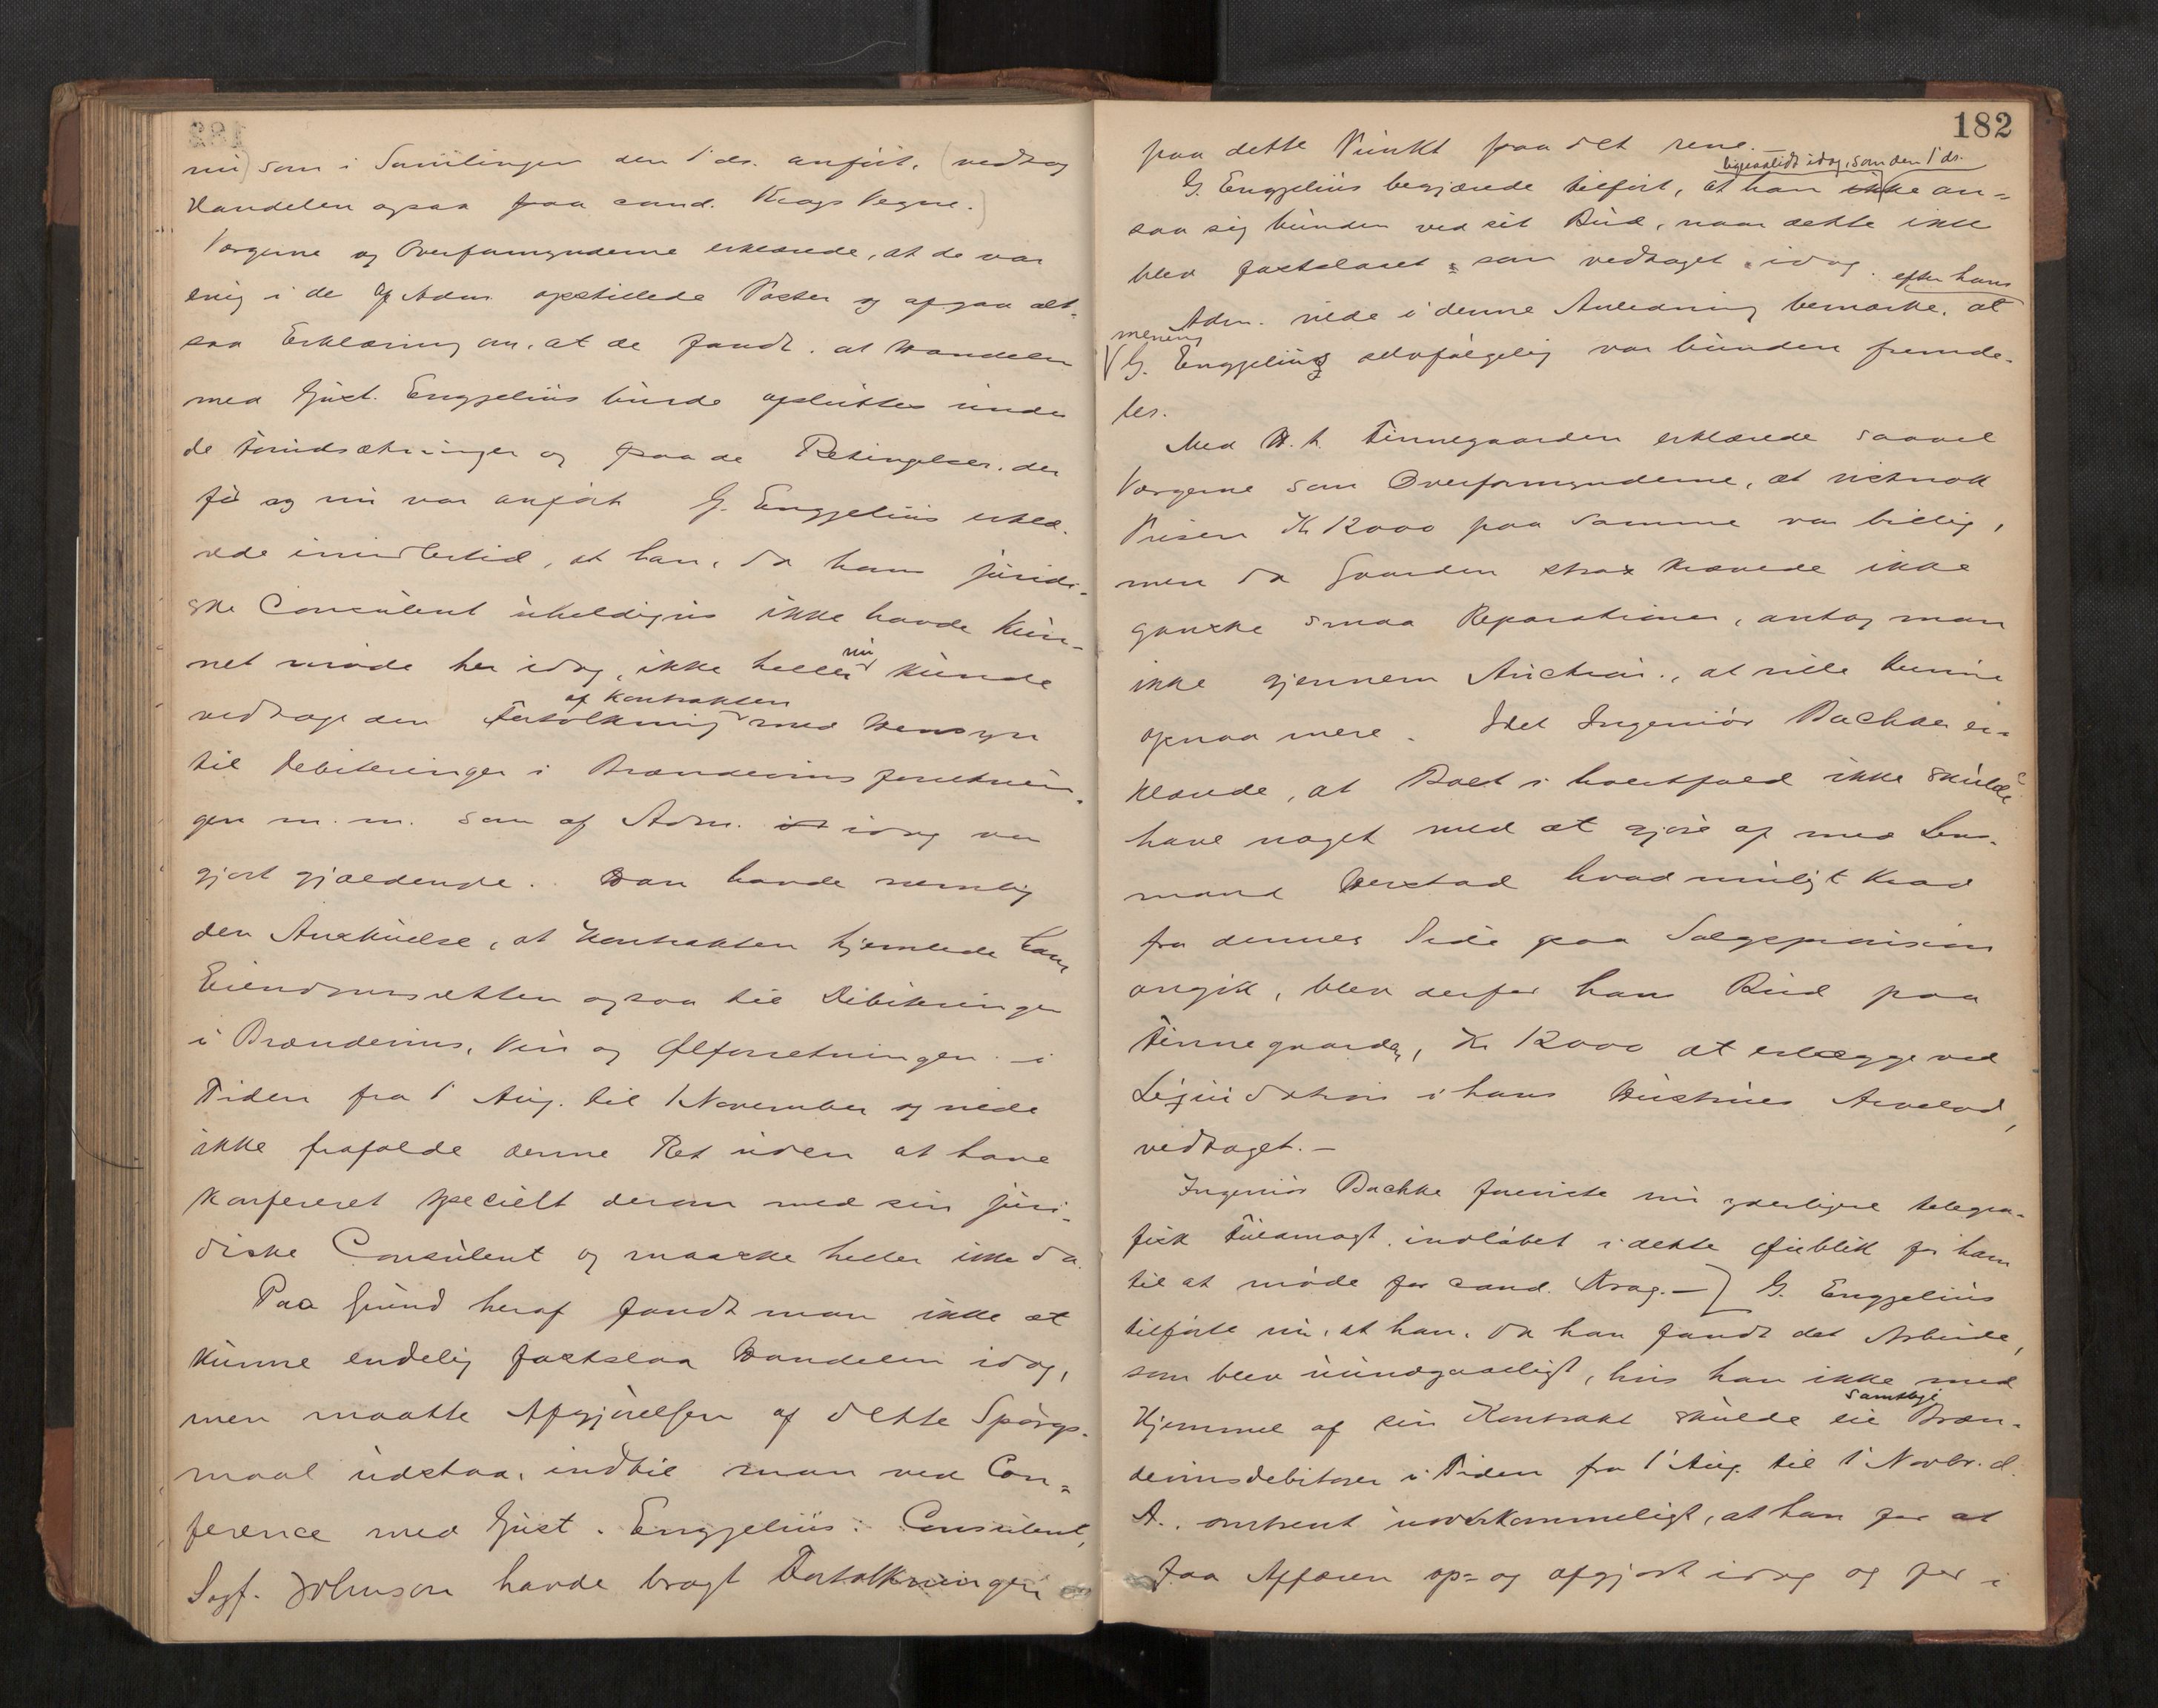 nu) som i Samlingen den 1' ds. anført, (vedtog
Handelen ogsaa paa cand. Krags Vegne.)
Værgerne og Overformynderne erklærede, at de var
enig i de af Adm. opstillede Poster og afgav alt-
saa Erklæring om, at de fandt, at Handelen
med Gust. Engzelius burde afsluttes under
de Forudsætninger og paa de Betingelser, der
før og nu var anført G. Engzelius erklæ-
rede imidlertid, at han, da hans juridi-
ske Consulent uheldigvis ikke havde kun-
net møde her idag, ikke heller nu kunde
vedtage den Fortolkning af Kontrakten med Hensyn
til Debiteringer i Brændevinsforretnin-
gen m. m. som af Adm. idag var
gjort gjældende. Han havde nemlig
den Anskuelse, at Kontrakten hjemlede ham
Eiendomsretten ogsaa til Debiteringer
i Brændevins, Vin og Ølforretningen i
Tiden fra 1' Aug. til 1 November og vilde
ikke frafalde denne Ret uden at have
konfereret specielt derom med sin juri-
diske Consulent og maaske heller ikke da.
Paa Grund heraf fandt man ikke at
kunne endelig fastslaa Handelen idag,
men maatte Afgjørelsen af dette Spørgs-
maal udstaa, indtil man ved Con-
ference med Gust. Engzelius: Consulent,
Sagf. Johnson havde bragt Fortolkningen
182
paa dette Punkt paa det rene.—
G. Engzelius begjærede tilført, at han ligesaalidt idag, som den 1' ds. ikke an-
saa sig bunden ved sit Bud, naar dette ikke
blev fastslaaet som vedtaget idag.
Adm. vilde i denne Anledning bemærke, at efter hans
mening G. Engzelius selvfølgelig var bunden fremde-
les.
Med H. t. Finnegaarden erklærede saavel
Værgerne som Overformynderne, at vistnok
Prisen Kr 12000 paa samme var billig,
men da Gaarden strax krævede ikke
ganske smaa Reparationer, antog man
ikke gjennem Auction, at ville kunne
opnaa mere. Idet Ingeniør Bachke er-
klærede, at Boet i hvertfald ikke skulde
have noget med at gjøre af med Lens-
mand hvad muligt Krav
fra dennes Side paa Salgsprovision
angik, blev derfor hans Bud paa
Finnegaarden, Kr 12000 at erlægge ved
Liquidation i hans Hustrues Arvelod,
vedtaget.—
Ingeniør Bachke foreviste nu yderligere telegra-
fisk Fuldmagt, indløbet i dette Øieblik for ham
til at møde for cand. Krag.—] G. Engzelius
tilførte nu, at han, da han fandt det Arbeide,
som blev uundgaaeligt, hvis han ikke med
Hjemmel af sin Kontrakt skulde eie samtlige Bræn-
devinsdebitorer i Tiden fra 1' Aug. til 1' Novbr. d.
A., omtrent uoverkommeligt, at han for at
faa Affæren op- og afgjort idag og for i